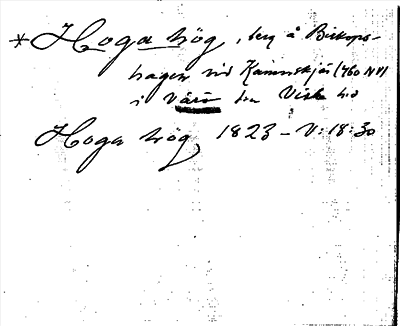 * Hoga hög, berg å Biskops-
hagen vid Kamnskjär (460 NV)
i Värö sn Viske hd
Hoga hög 1823 – V: 18:30